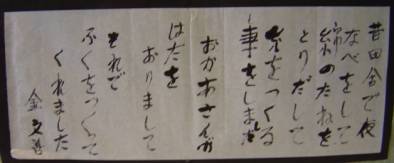 昔田舎で夜
なべをして
綿のたねを
とりだして
糸をつくる
事をします
おかあさんが
はたを
おりまして
それで
ふくをつくって
くれました
金文善